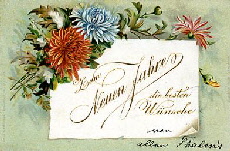 Zum
Neuen Jahre
die besten
Wünsche
von
allen